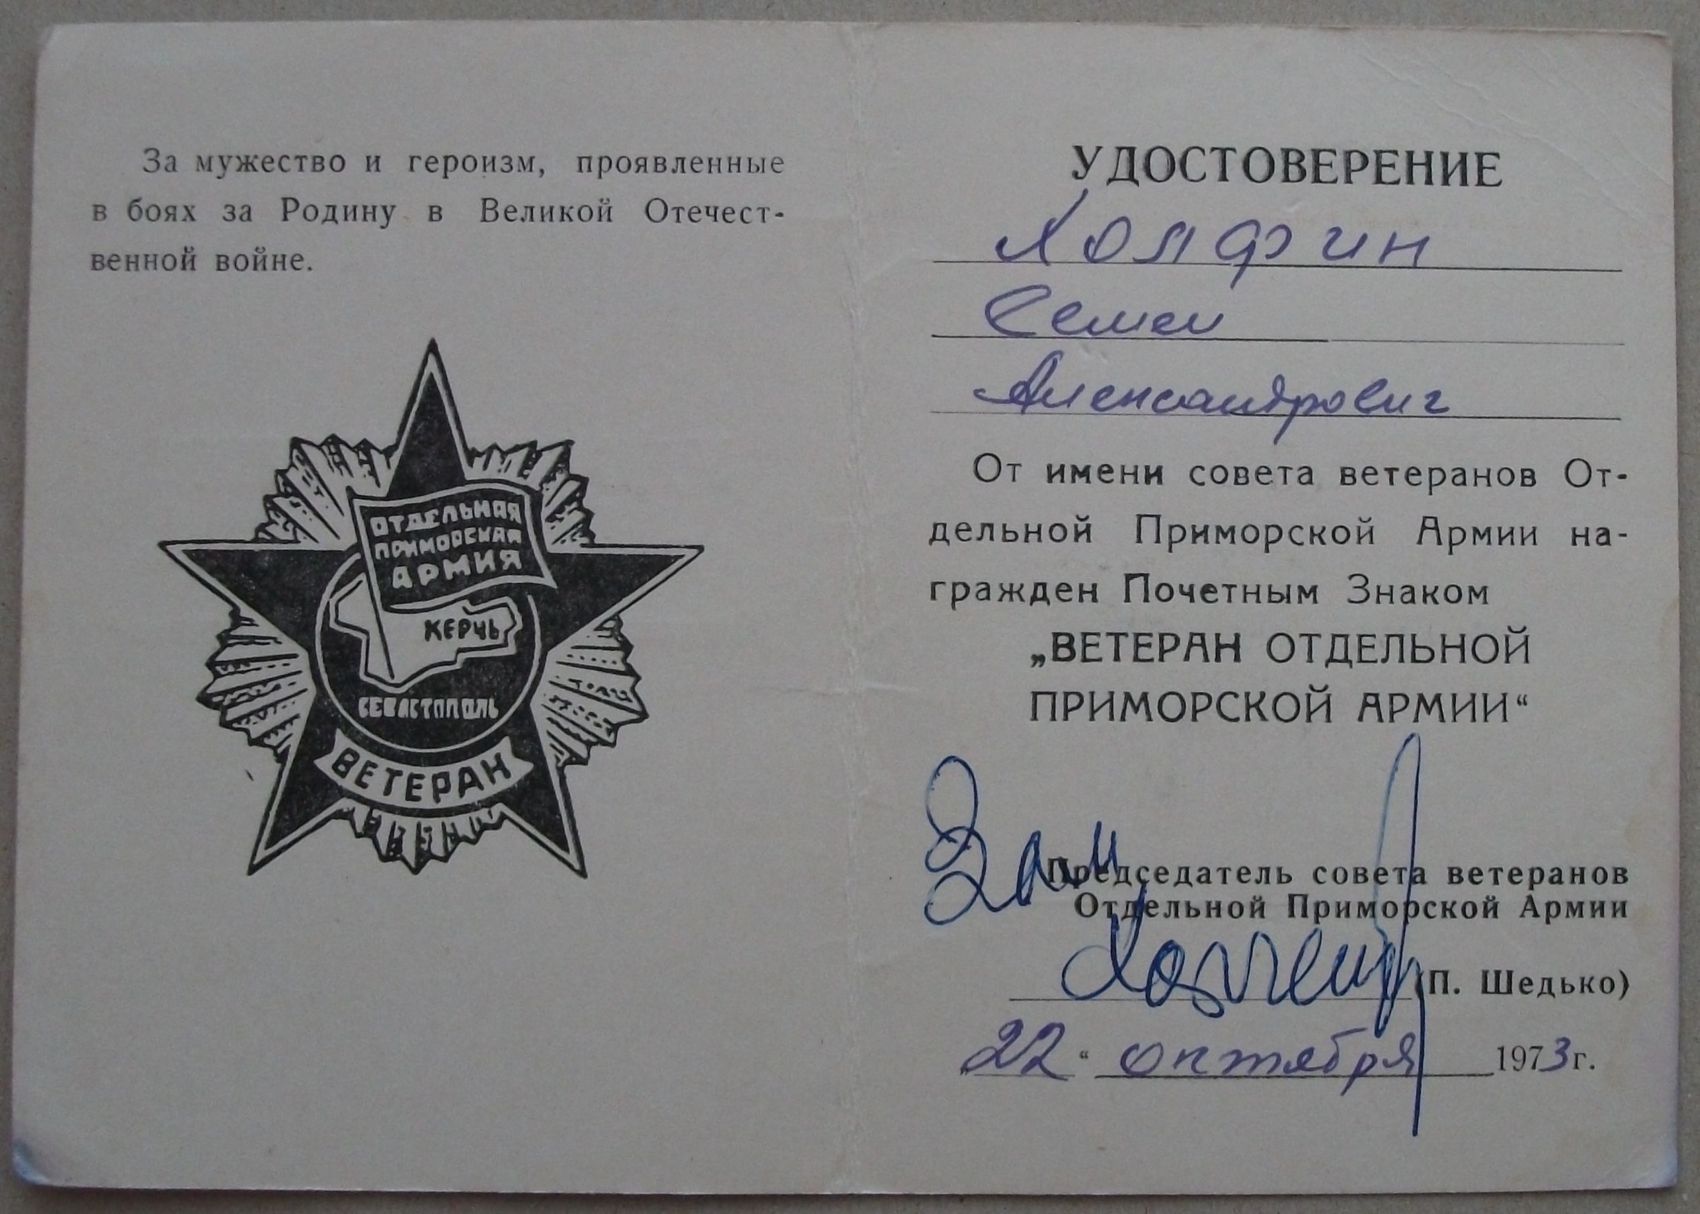 За мужество и героизм, проявленные
в боях за Родину в Великой Отечест-
венной войне.
ОТДЕЛЬНАЯ
ПРИМОРСКАЯ
АРМИЯ
КЕРЧЬ
СЕВАСТОПОЛЬ
ВЕТЕРАН
УДОСТОВЕРЕНИЕ
Холфин
Семен
Александрович
От имени совета ветеранов От-
дельной Приморской Армии на-
гражден Почетным Знаком
„ВЕТЕРАН ОТДЕЛЬНОЙ
ПРИМОРСКОЙ АРМИИ“
Зам
Председатель совета ветеранов
Отдельной Приморской Армии
(П. Шедько)
„22“ октября 1973г.